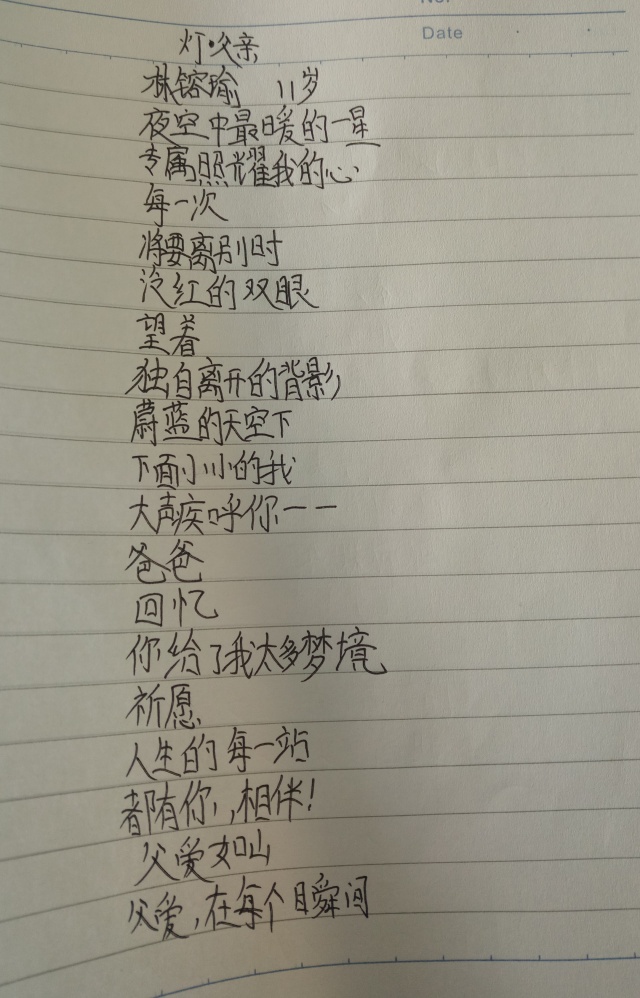 Date
灯·父亲
林镕瑜 11岁
夜空中最暖的一星
专属照耀我的心
每一次
将要离别时
泛红的双眼
望着
独自离开的背影
蔚蓝的天空下
下面小小的我
大声疾呼你——
爸爸
回忆
你给了我太多梦境
祈愿
人生的每一站
都有你,相伴!
父爱如山
父爱,在每个瞬间